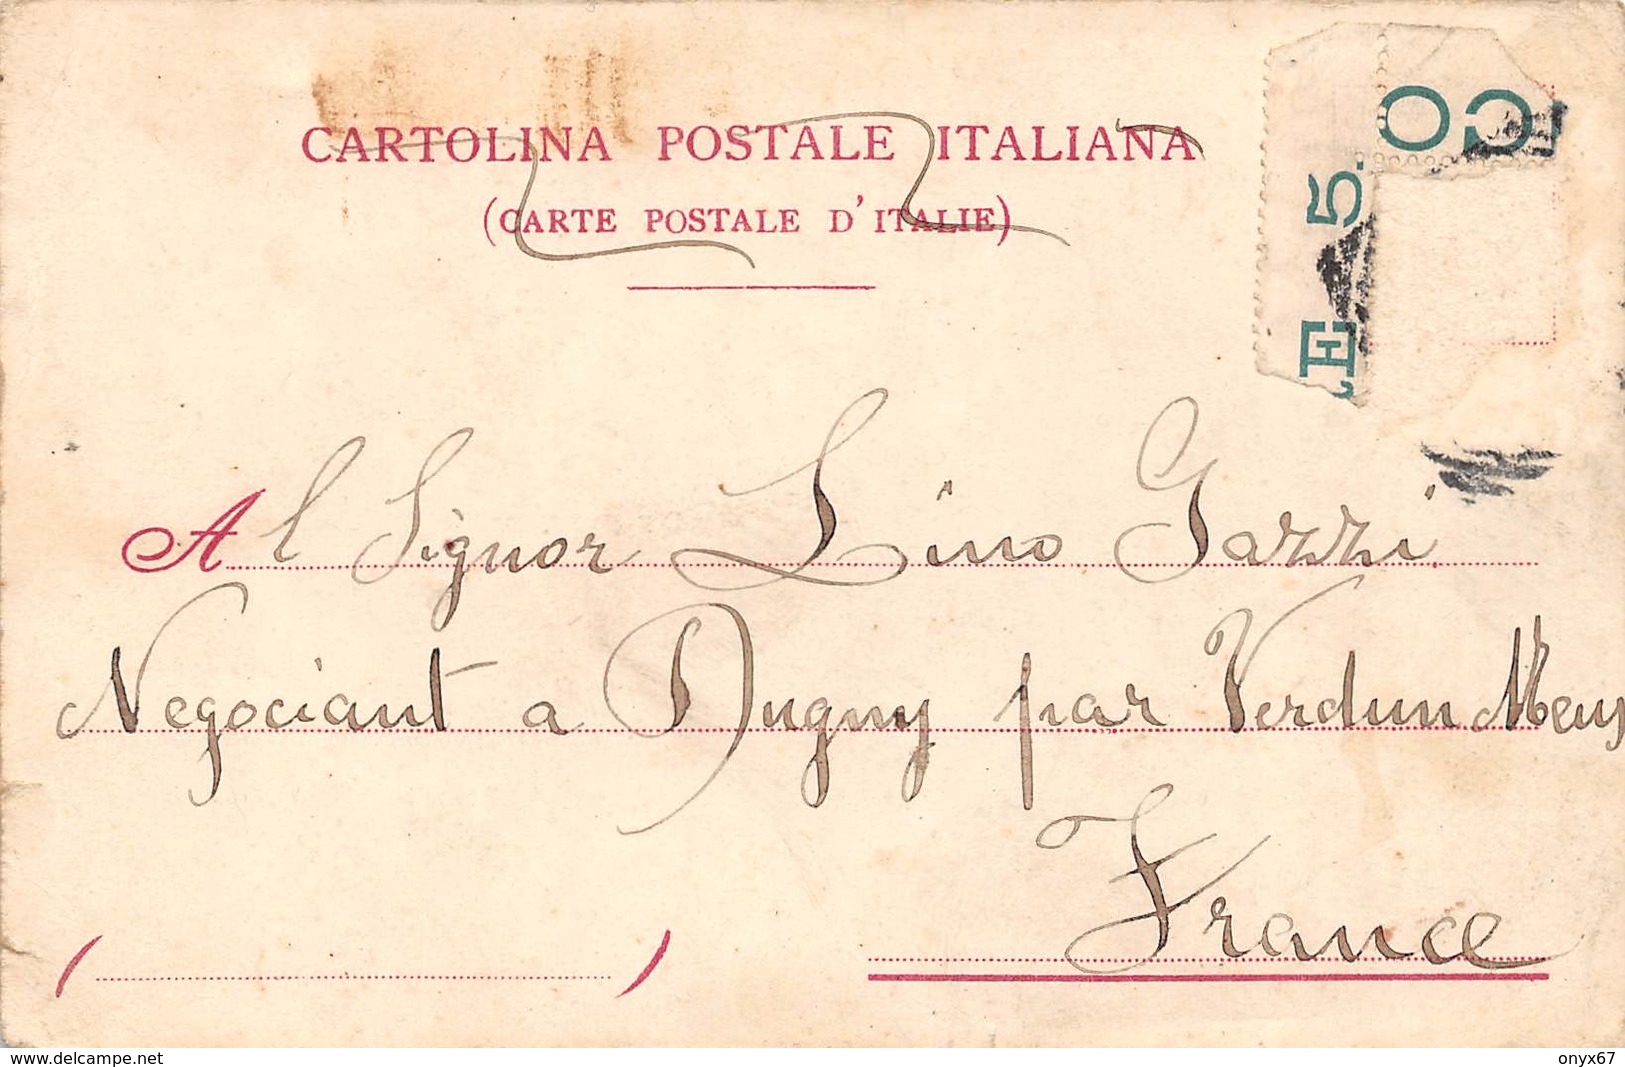 CARTOLINA POSTALE ITALIANA
(CARTE POSTALE D'ITALIE)
CO
5.
E
Al Signor Lino Gazzi
Negociant a Dugny par Verdun Meus
France
( )
www.delcampe.net
onyx67